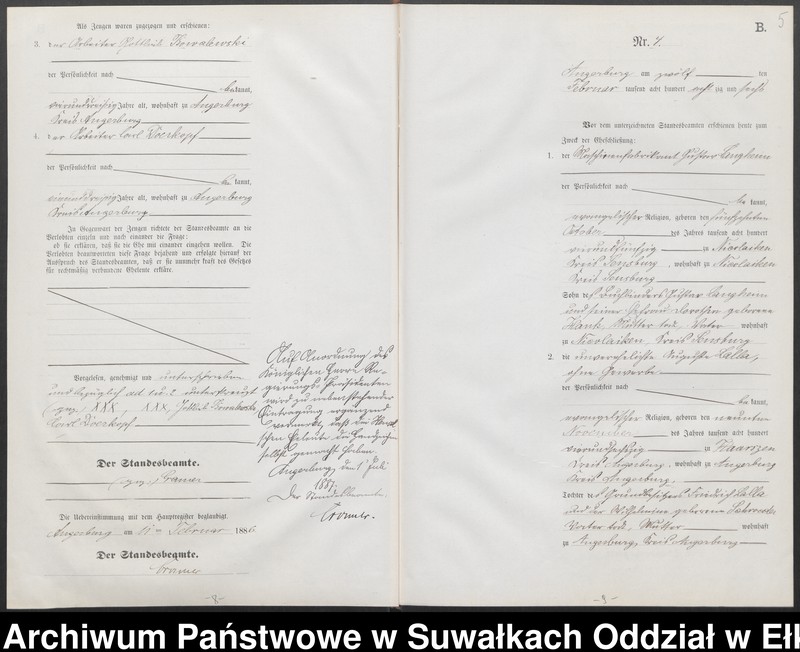 Als Zeugen waren zugezogen und erschienen:
3. der Arbeiter Gottlieb Kowalewski
der Persönlichkeit nach
bekannt,
vierunddreißig Jahre alt, wohnhaft zu Angerburg
Kreis Angerburg
4. der Arbeiter Carl Doerkopf
der Persönlichkeit nach
bekannt,
vierunddreißig Jahre alt, wohnhaft zu Angerburg
Kreis Angerburg
In Gegenwart der Zeugen richtete der Standesbeamte an die
Verlobten einzeln und nach einander die Frage:
ob sie erklären, daß sie die Ehe mit einander eingehen wollen. Die
Verlobten beantworteten diese Frage bejahend und erfolgte hierauf der
Ausspruch des Standesbeamten, daß er sie nunmehr kraft des Gesetzes
für rechtmäßig verbundene Eheleute erkläre.
Vorgelesen, genehmigt und unterschrieben
und bezüglich ad 1 u. 2 unterkreuzt
gez. XXX, XXX, Gottlieb Kowalewski
Carl Doerkopf
Der Standesbeamte.
gez. Cramer
Die Uebereinstimmung mit dem Hauptregister beglaubigt.
Angerburg am 11ten Februar 1886
Der Standesbeamte.
Cramer
Auf Anordnung des
Königlichen Herrn Re-
gierungs-Präsidenten
wird zu nebenstehender
Eintragung ergänzend
vermerkt, daß die
Eheleute die Handzeichen
selbst gemacht haben.
Angerburg, den 1 Juli
1887
Der Standesbeamte
Cramer.
-8-
B.
5
Nr. 7.
Angerburg am zwölf ten
Februar tausend acht hundert acht zig und sechs
Vor dem unterzeichneten Standesbeamten erschienen heute zum
Zweck der Eheschließung:
1. der Maschinenfabrikant Gustav Langhann
der Persönlichkeit nach
bekannt,
evangelischer Religion, geboren den fünfzehnten
October des Jahres tausend acht hundert
vierundfünfzig zu Nicolaiken
Kreis Sensburg, wohnhaft zu Nicolaiken
Kreis Sensburg
Sohn des Buchbinders Gustav Langhann
und seiner Ehefrau Dorothea geborene
Hank, Mutter tod, Vater wohnhaft
zu Nicolaiken Kreis Sensburg
2. die unverehelichte Auguste Lalla,
ohne Gewerbe
der Persönlichkeit nach
bekannt,
evangelischer Religion, geboren den neunten
November des Jahres tausend acht hundert
vierundsechzig zu Haarszen
Kreis Angerburg, wohnhaft zu Angerburg
Kreis Angerburg,
Tochter des Grundbesitzers Friedrich Lalla
und der Wilhelmine geborene
Vater tod, Mutter wohnhaft
zu Angerburg, Kreis Angerburg
-9-
Archiwum Państwowe w Suwałkach Oddział w Ełk